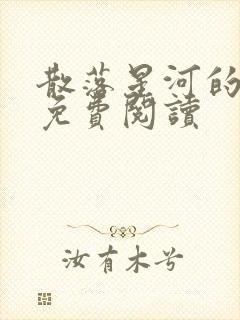 散落星河的
免費閱讀
汝有木兮